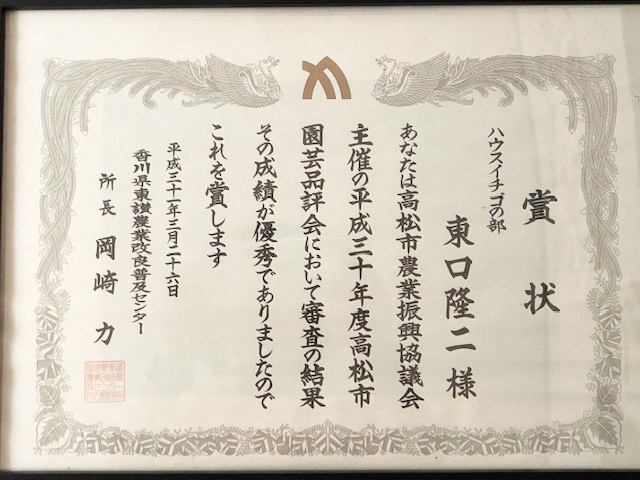 賞状
ハウスイチゴの部
東口隆二様
あなたは高松市農業振興協議会
主催の平成三十年度高松市
園芸品評会において審査の結果
その成績が優秀でありましたので
これを賞します
平成三十一年三月二十六日
香川県東讃農業改良普及センター
所長 岡崎力